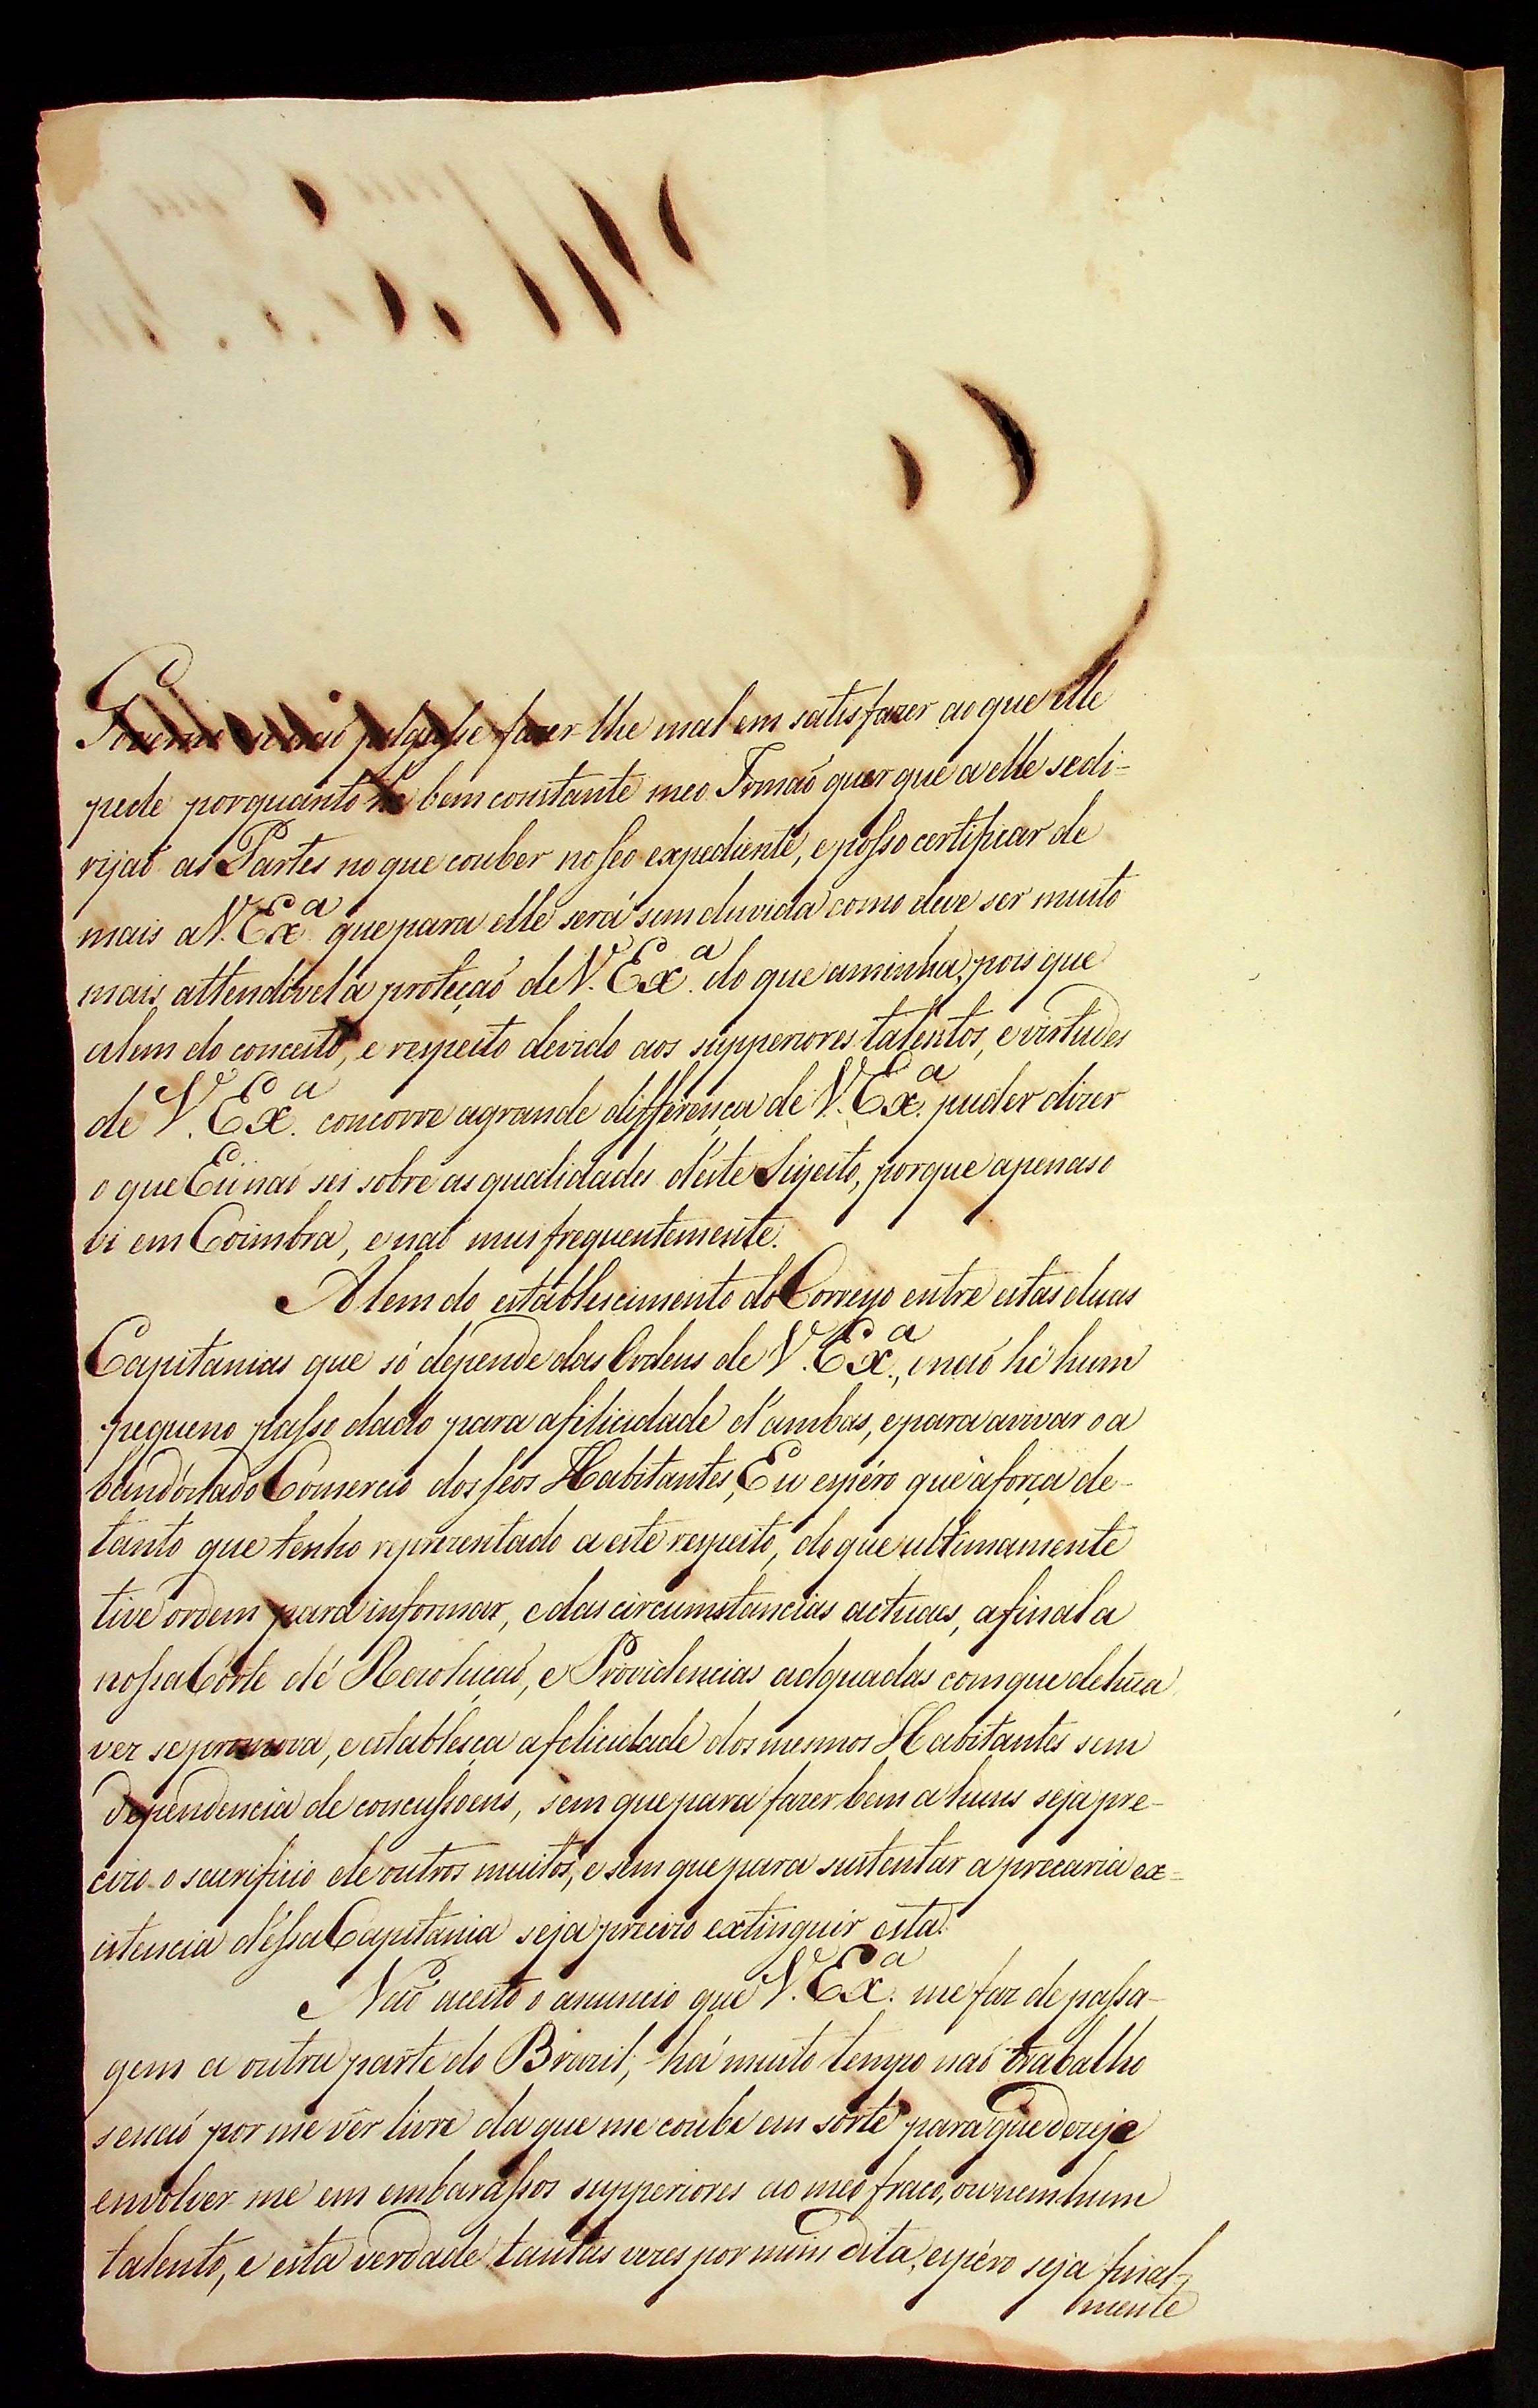 Governo e não julgasse fazer-lhe mal em satisfazer ao que elle
pede porquanto he bem constante meo Irmaõ quer que a elle se di-
rijaõ as Partes no que couber no seo expediente, e posso certificar de
mais a V. Ex.ª que para elle será sem duvida como deve ser muito
mais attendivel a proteçaõ de V. Ex.ª do que a minha, pois que
alem do conceito, e respeito devido aos supperiores talentos, e virtudes
de V. Ex.ª concorre a grande differença de V. Ex.ª puder dizer
o que Eu naõ sei sobre as qualidades d'este Sugeito, porque apenas o
vi em Coimbra, e naõ mui frequentemente.
Alem do establescimento do Correyo entre estas duas
Capitanias que só depende das Ordens de V. Ex.ª, e naõ he hum
pequeno passo dado para a filicidade d'ambas, e para avivar o a
bandónado Comercio dos seos Habitantes, Eu espéro que à força de-
tanto que tenho reprezentado a este respeito, do que ultimamente
tive ordem para informar, e das circumstancias actuaes, afinal a
nossa Corte dé Rezoluçaõ, e Providencias adquadas com que de hũa
vez se promova, e establesça a felicidade dos mesmos Habitantes sem
dependencia de concussoens, sem que para fazer bem a huns seja pre-
cizo o sacrificio de outros muitos, e sem que para sustentar a precaria ex-
istencia d'éssa Capitania seja precizo extinguir esta.
Naõ aceito o anuncio que V. Ex.ª me faz de passa-
gem a outra parte do Brazil, há muito tempo naõ trabalho
senaõ por me vêr livre da que me coube em sorte para que dezeje
envolver-me em embarassos supperiores ao meo fraco, ou nemhum
talento, e esta verdade tantas vezes por mim dita, espéro seja final-
mente